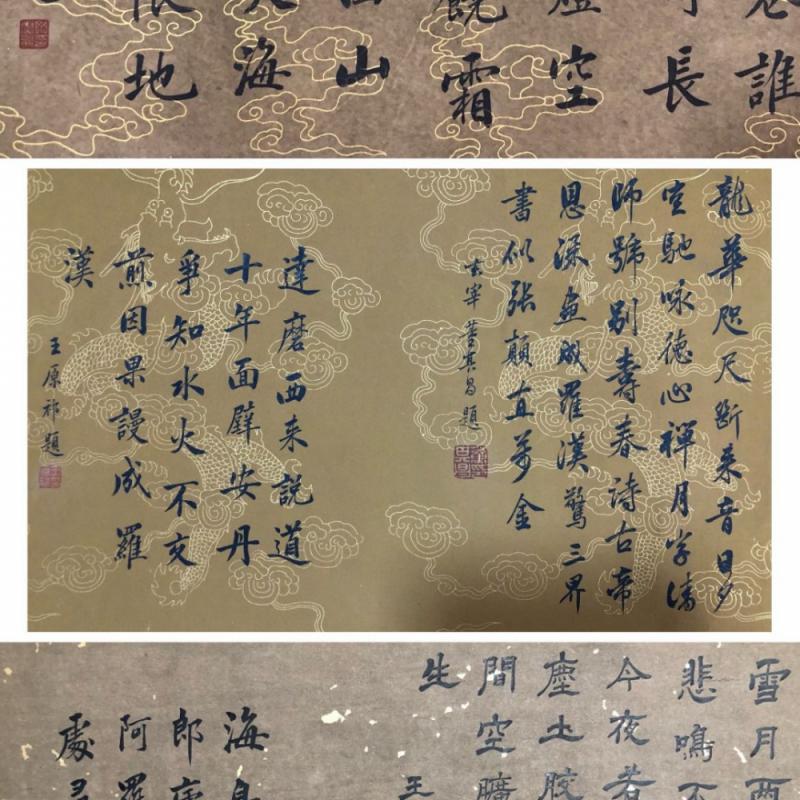 誰
長
空
霜
山
海
地
龍華咫尺斷来音日夕
空馳詠德心禪月字清
師號別壽春詩古帝
恩深畫成羅漢驚三界
書似張顛直萬金
玄宰董其昌題
達磨西来說道
十年面壁安丹
爭知水火不交
煎因果謾成羅
漢
王原祁題
雪月兩
悲鳴不
今夜若
塵土胶
間空曠
生
王
海
郎
阿羅
處